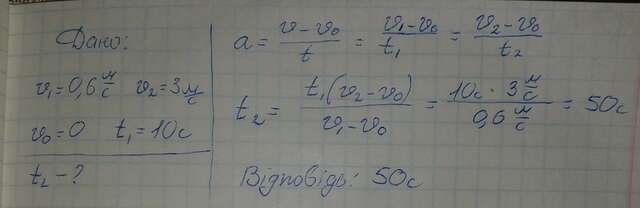 Дано:
v₁=0,6 м/с v₂=3 м/с
v₀=0 t₁=10с
t₂-?
a = (v-v₀)/t = (v₁-v₀)/t₁ = (v₂-v₀)/t₂
t₂ = t₁(v₂-v₀)/(v₁-v₀) = (10с · 3 м/с)/(0,6 м/с) = 50с
Відповідь: 50с